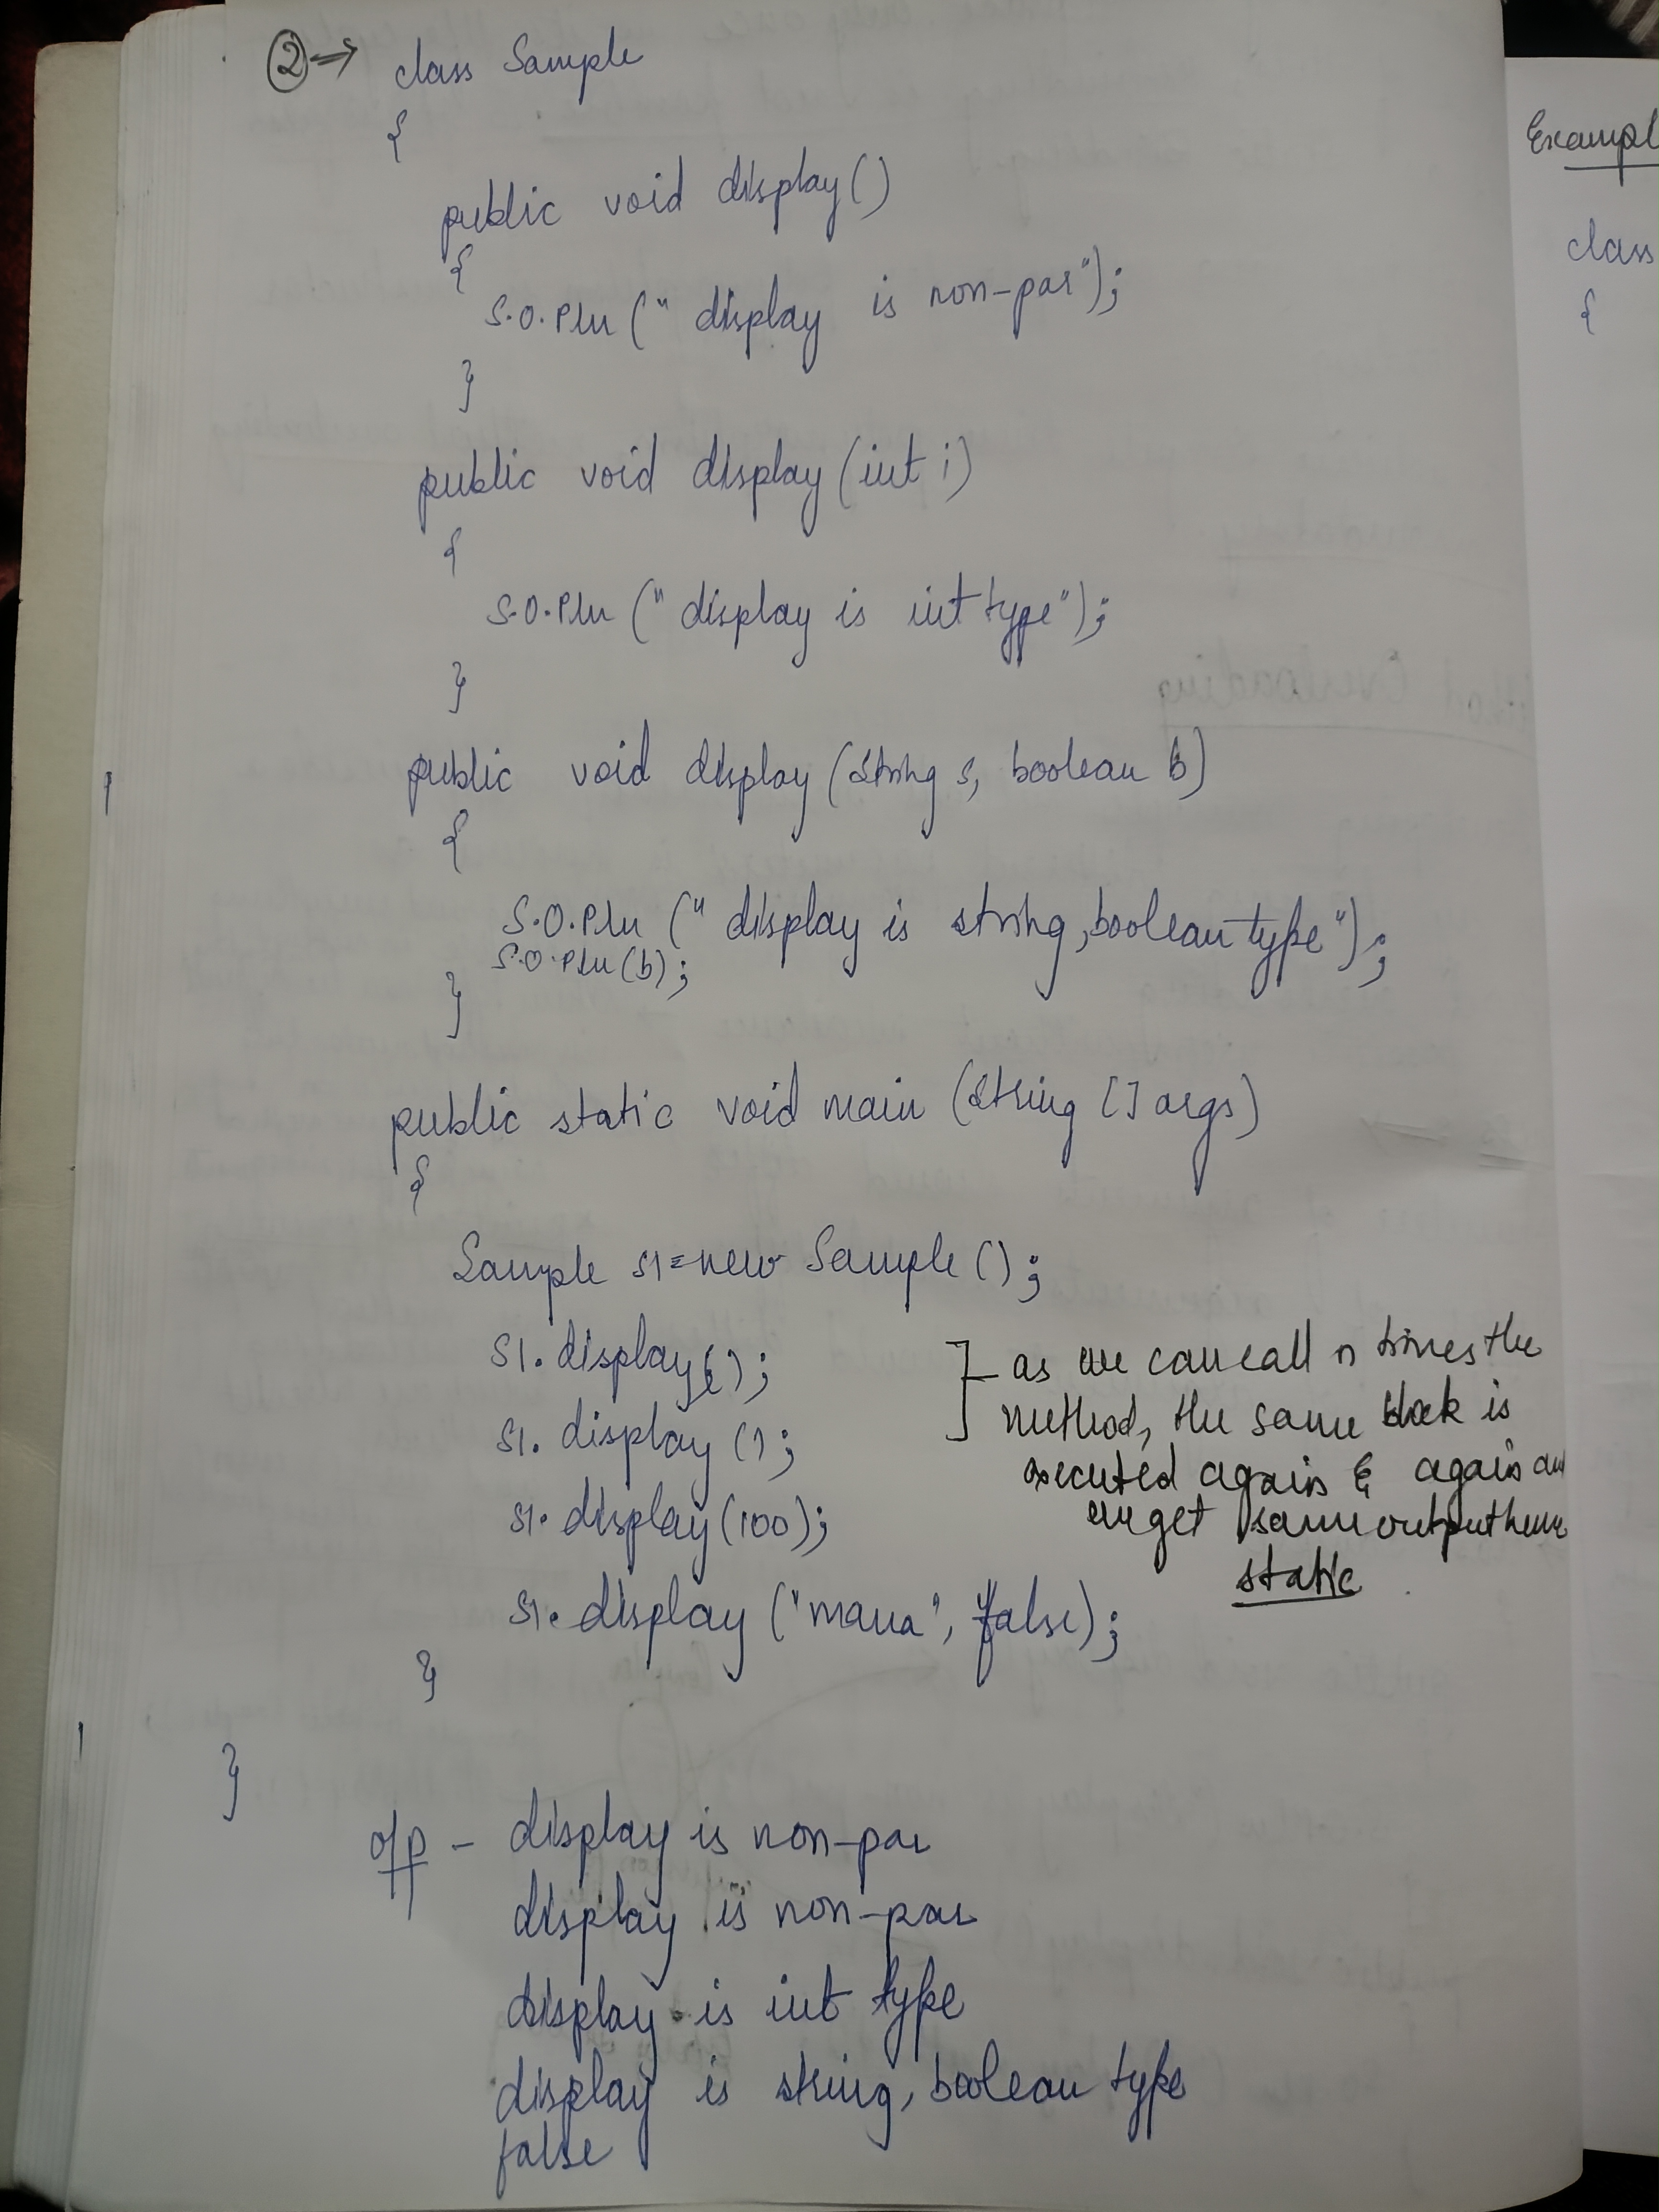 ② → class Sample
{
public void display()
{
S.O.Pln (" display is non-par");
}
public void display (int i)
{
S.O.Pln (" display is int type");
}
public void display (String s, boolean b)
{
S.O.Pln (" display is string, boolean type");
S.O.Pln (b);
}
public static void main (String [] args)
{
Sample s1 = new Sample ();
s1. display ();
s1. display ();
s1. display (100);
s1. display ("mana", false);
}
}
as we can call n times the
method, the same block is
executed again & again and
we get same output hence
static
o/p - display is non-par
display is non-par
display is int type
display is string, boolean type
false
Exampl
class
{